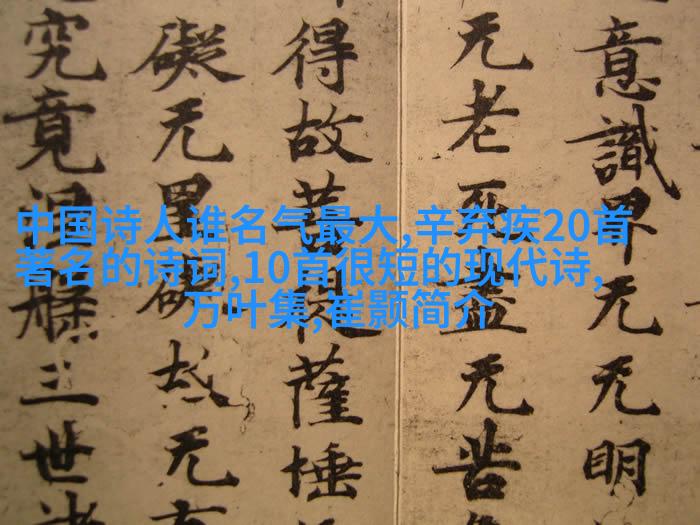 中国诗人谁名气最大,辛弃疾20首
著名的诗词,10首很短的现代诗,
万叶集,崔颢简介
意識界无无明
无老死盡无苦
得故菩提薩埵
礙无罣礙故无有
究竟涅槃三世諸